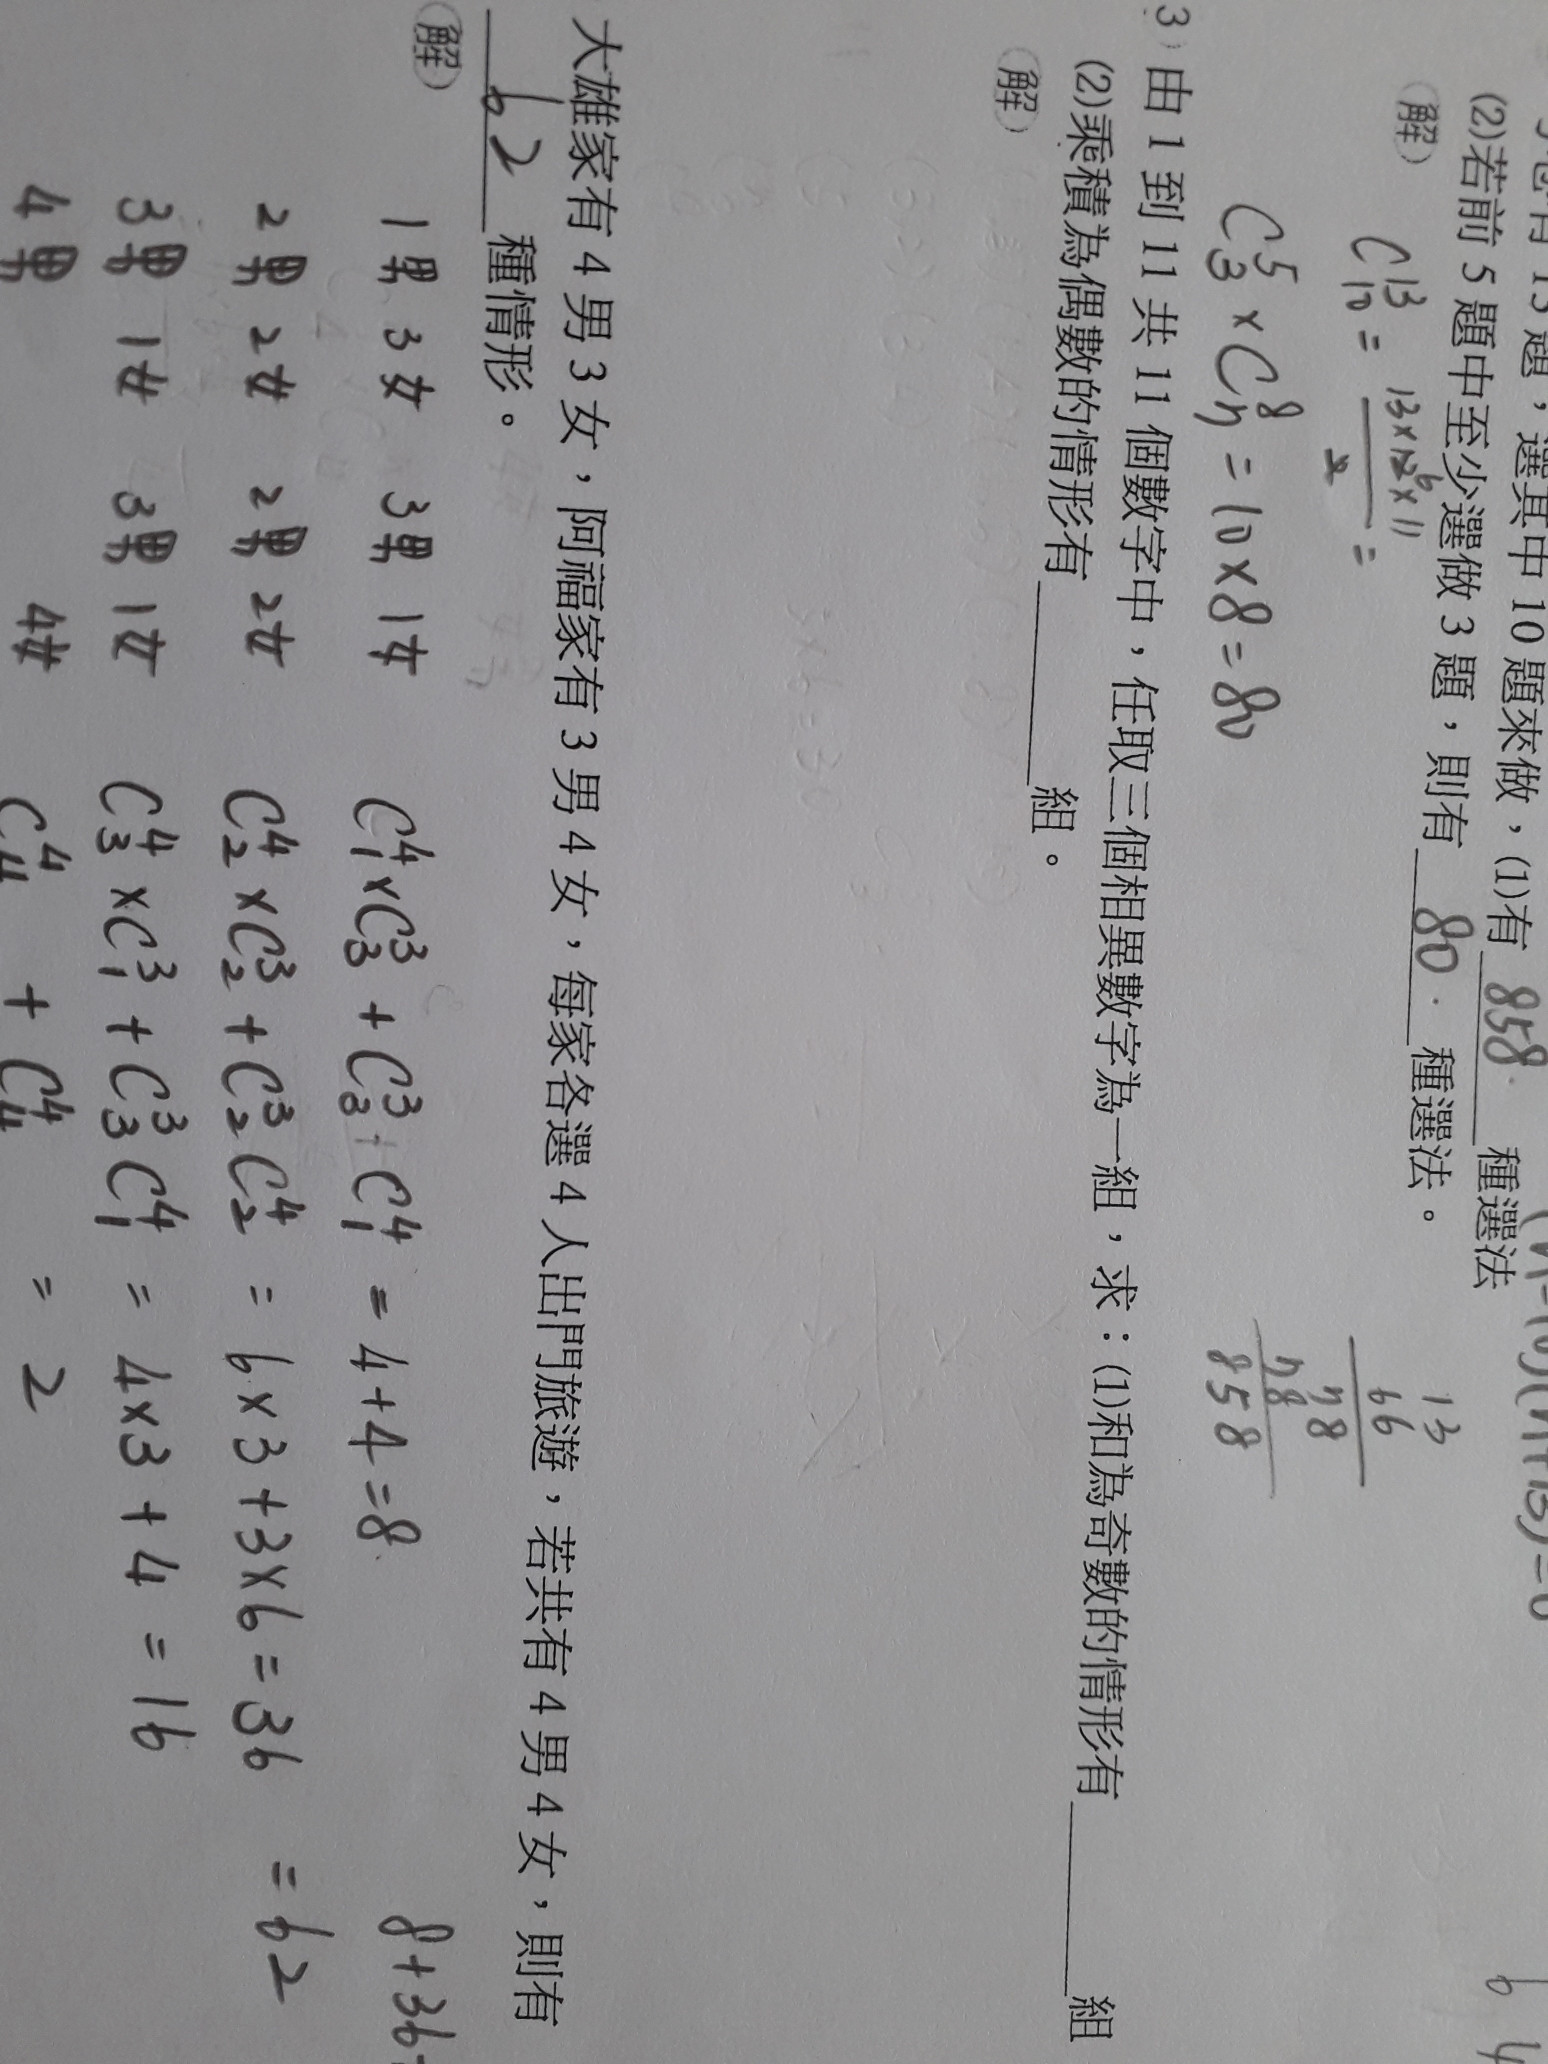 題，選其中10題來做，(1)有 858 種選法
(2)若前5題中至少選做3題，則有 80 種選法。
解
C¹³₁₀ = 13×12×11 / 2 =
C⁵₃ × C⁸₇ = 10×8 = 80
13
66
78
78
858
3) 由1到11共11個數字中，任取三個相異數字為一組，求：(1)和為奇數的情形有 ______ 組
(2)乘積為偶數的情形有 ______ 組。
解
大雄家有4男3女，阿福家有3男4女，每家各選4人出門旅遊，若共有4男4女，則有
62 種情形。
解
1男 3女 3男 1女 C⁴₁×C³₃ + C³₃+C⁴₁ = 4+4=8 8+36
2男 2女 2男 2女 C⁴₂×C³₂+C³₂C⁴₂ = 6×3+3×6=36 = 62
3男 1女 3男 1女 C⁴₃×C³₁+C³₃C⁴₁ = 4×3+4 = 16
4男 4女 C⁴₄ + C⁴₄ = 2